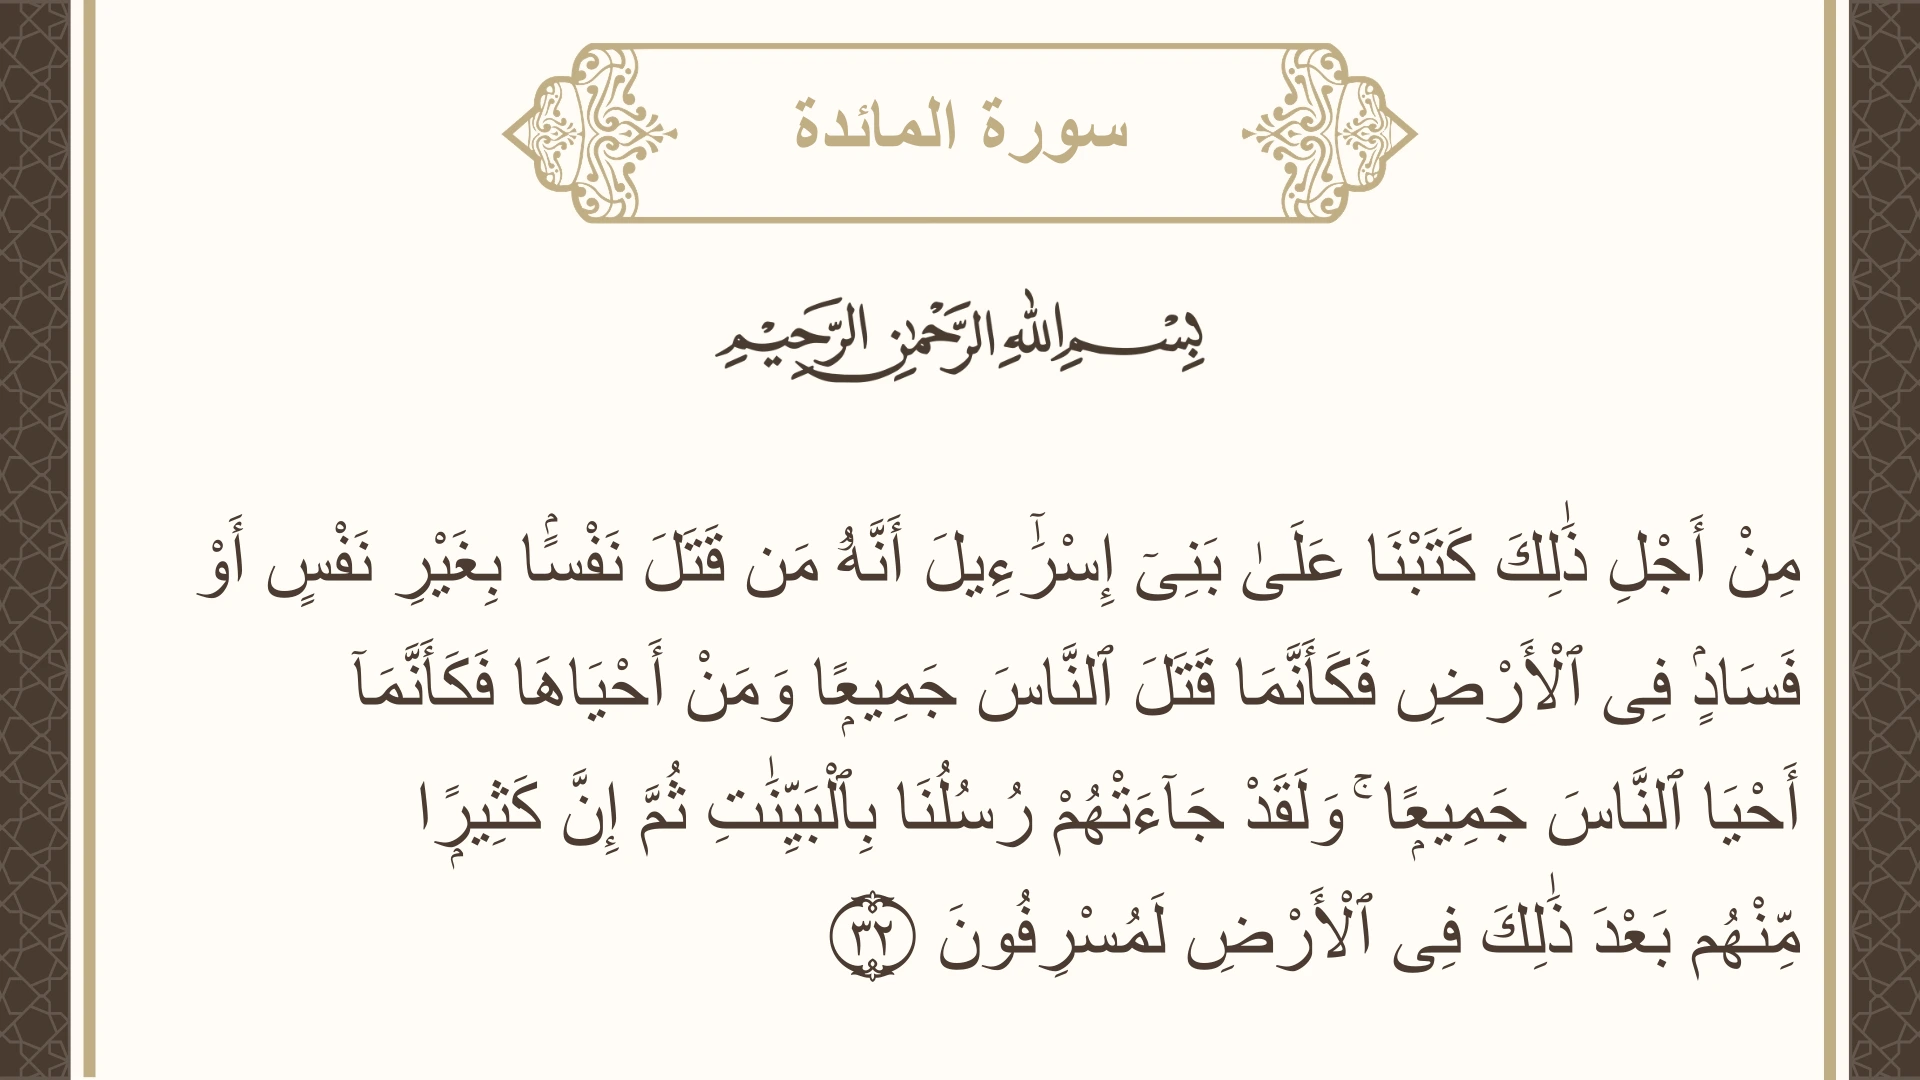 سورة المائدة
بِسْمِ اللهِ الرَّحْمٰنِ الرَّحِيْمِ
مِنْ أَجْلِ ذَٰلِكَ كَتَبْنَا عَلَىٰ بَنِىٓ إِسْرَٰٓءِيلَ أَنَّهُۥ مَن قَتَلَ نَفْسًۢا بِغَيْرِ نَفْسٍ أَوْ
فَسَادٍۢ فِى ٱلْأَرْضِ فَكَأَنَّمَا قَتَلَ ٱلنَّاسَ جَمِيعًۭا وَمَنْ أَحْيَاهَا فَكَأَنَّمَآ
أَحْيَا ٱلنَّاسَ جَمِيعًۭا ۚ وَلَقَدْ جَآءَتْهُمْ رُسُلُنَا بِٱلْبَيِّنَٰتِ ثُمَّ إِنَّ كَثِيرًۭا
مِّنْهُم بَعْدَ ذَٰلِكَ فِى ٱلْأَرْضِ لَمُسْرِفُونَ ٣٢